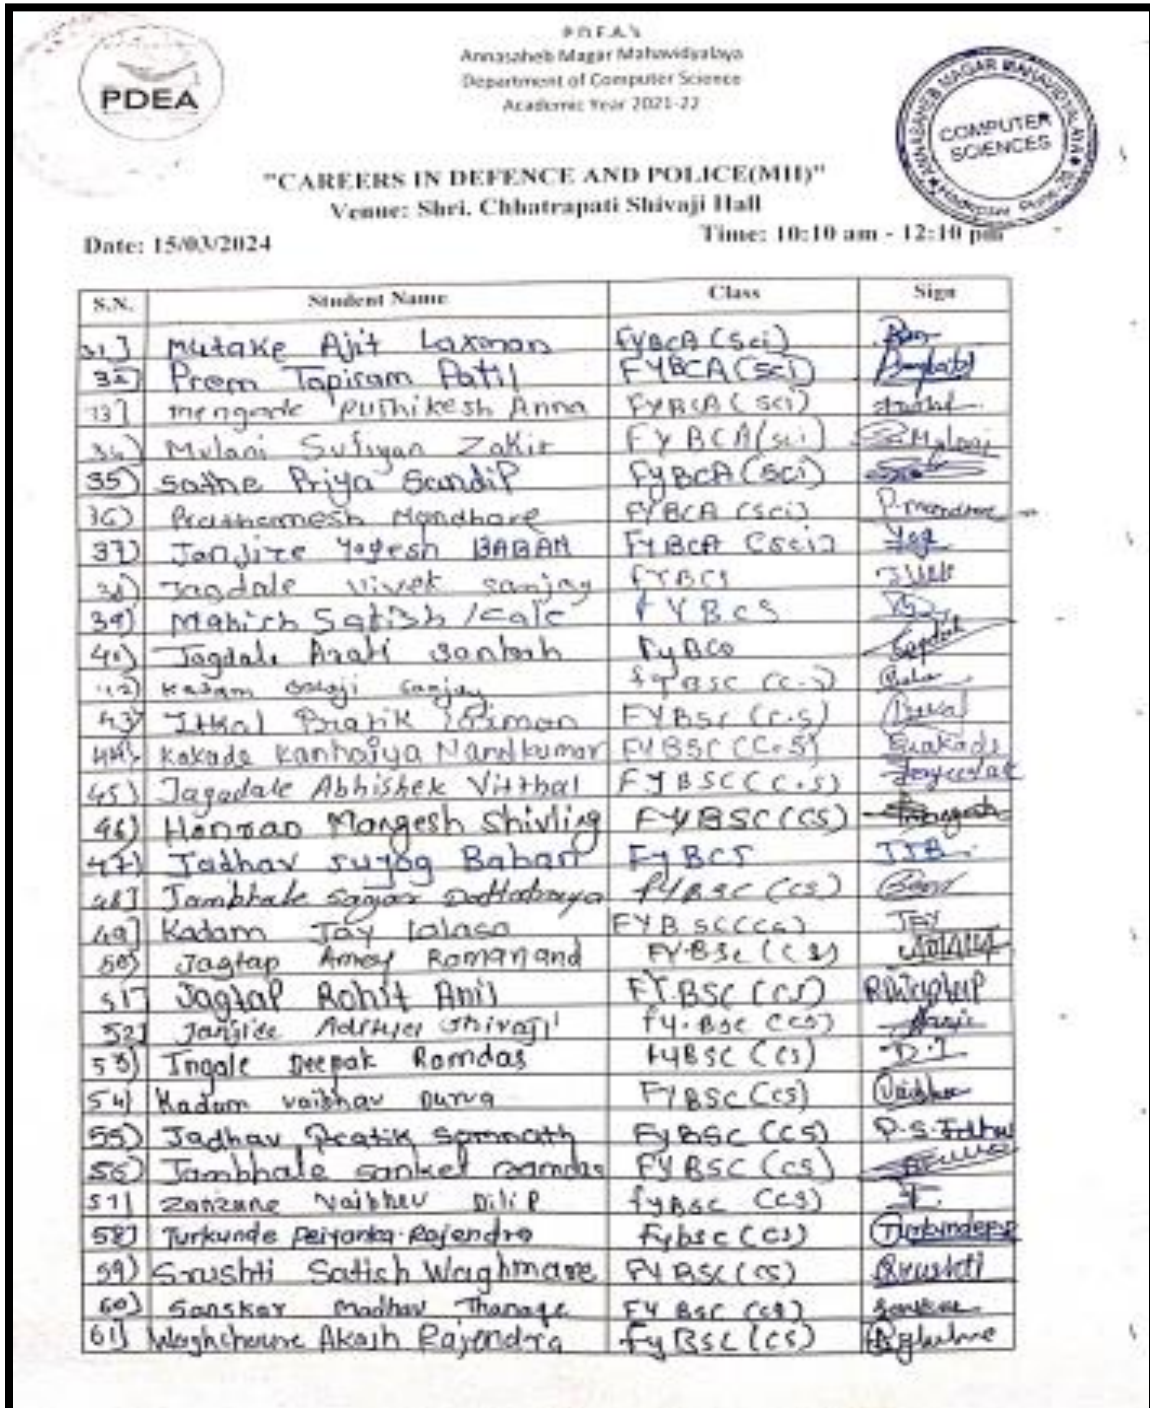 PDEA
P.D.E.A's
Annasaheb Magar Mahavidyalaya
Department of Computer Science
Academic Year 2021-22
ANNASAHEB MAGAR MAHAVIDYALAYA
COMPUTER
SCIENCES
"CAREERS IN DEFENCE AND POLICE(MH)"
Venue: Shri. Chhatrapati Shivaji Hall
Date: 15/03/2024 Time: 10:10 am - 12:10 pm
S.N. Student Name Class Sign
31] Mutake Ajit Laxman FYBCA (Sci)
32] Prem Tapiram Patil FYBCA (Sci)
33] mengade Anna FYBCA (sci)
34) Mulani Sufiyan Zakir FYBCA (sci) S.Mulani
35) Sathe Priya Sandip FYBCA (Sci)
36) Prathamesh Mandhare FYBCA (sci) P.mandhare
37) Janjire Yogesh BABAN FYBCA (sci) Yog
38) Jagdale Vivek Sanjay FYBCS
39) Manish Satish Kale FYBCS
40) Jagdale Arati Santosh FyBCS
42) Kadam Balaji Sanjay fyBSC (C.S)
43) Itkal Pratik Laxman FYBSC (C.S)
44) Kakade Kanhaiya Nandkumar FYBSC (C.S) Kakade
45) Jagadale Abhishek Vitthal FYBSC (C.S)
46) Honrao Mangesh Shivling FYBSC (CS) Mangesh
47) Jadhav Suyog Baban FyBCS JSB
48] Jambhale Sagar Dattatraya fyBSC (CS)
49] Kadam Jay Lalaso FYBSC (CS) JAY
50) Jagtap Amey Ramanand FY.BSc (CS)
51] Jagtap Rohit Anil FY.BSC (CS) RAJagtap
52] Janjire Aditya Shivaji fy.BSC (CS)
53) Ingole Deepak Ramdas FYBSC (CS) D.I
54) Kadam Vaibhav Durva FYBSC (CS) Vaibhav
55) Jadhav Pratik Somnath FyBSC (CS) P.S.Jadhav
56) Jambhale Sanket Ramdas FYBSC (CS)
57] Zanzane Vaibhav Dilip fyBSC (CS)
58] Turkunde Priyanka Rajendra Fybsc (CS)
59) Srushti Satish Waghmare FYBSC (CS) Srushti
60) Sanskar Madhav Thanage FYBSC (CS)
61] Waghchoure Akash Rajendra fyBSC (CS)